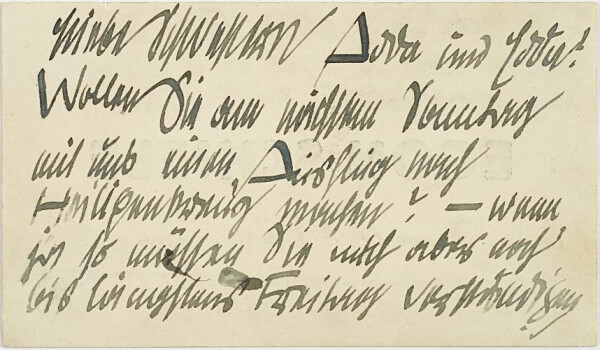 Liebe Schwestern Adda und Edda!
Wollen Sie am nächsten Sonntag
mit uns einen Ausflug nach
Heiligenkreuz machen? — wenn
ja so müssten Sie mich aber noch
bis längstens Freitag verständigen